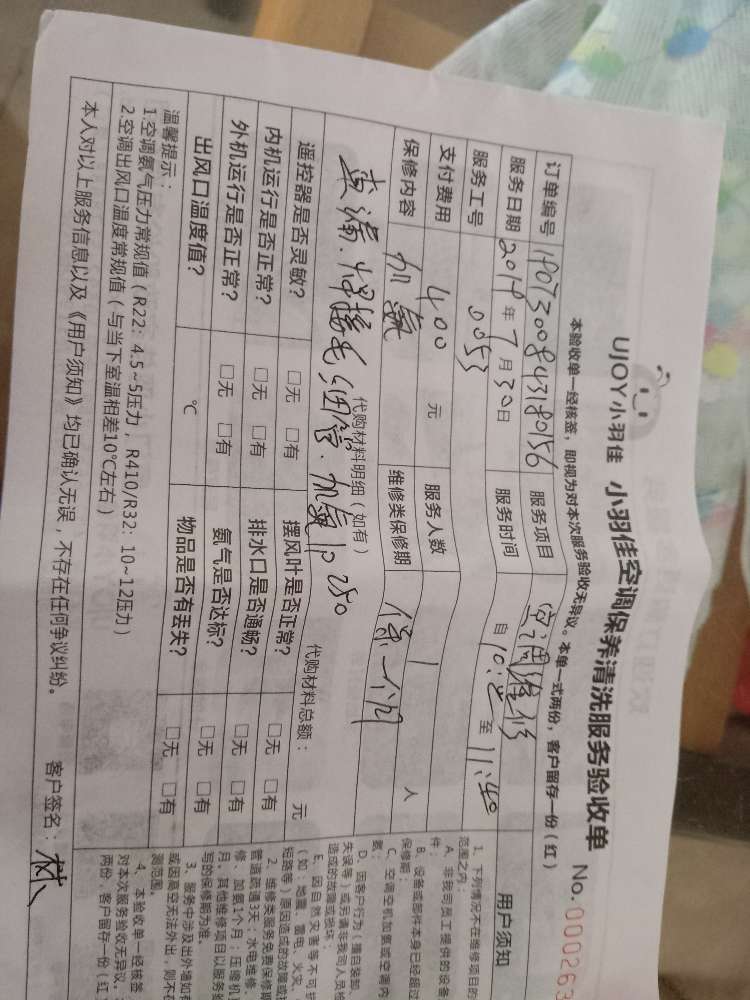 UJOY小羽佳 小羽佳空调保养清洗服务验收单 No.000263
本验收单一经核签，即视为对本次服务验收无异议。本单一式两份，客户留存一份（红）
订单编号 服务项目 空调维修
服务日期 2019年7月30日 服务时间 自 至 11:40
服务工号 0053
支付费用 400 元 服务人数 1 人
保修内容 加氟 维修类保修期 保一个月
代购材料明细（如有） 代购材料总额： 元
查漏.焊接毛细管.加氟 280
遥控器是否灵敏？ □无 □有 摆风叶是否正常？ □无 □有
内机运行是否正常？ □无 □有 排水口是否通畅？ □无 □有
外机运行是否正常？ □无 □有 氨气是否达标？ □无 □有
出风口温度值？ ℃ 物品是否有丢失？ □无 □有
温馨提示：
1.空调氨气压力常规值（R22：4.5~5压力，R410/R32：10~12压力）
2.空调出风口温度常规值（与当下室温相差10℃左右）
本人对以上服务信息以及《用户须知》均已确认无误，不存在任何争议纠纷。 客户签名：林
用户须知
1、下列情况不在维修项目的
范围之内：
A、非我司员工提供的设备
件；
B、设备或部件本身已经超过
保修期；
C、空调空机加氨或空调内
氨；
D、因客户行为（擅自装卸、
失误等）或另请非我司人员检
造成的故障或损坏；
E、因自然灾害等不可
（如：地震、雷电、火灾、
短路等）原因造成的故障或
2、维修类服务免费保修期
管道疏通3天；水电维修、
修、加氨1个月；压缩机
月，其他维修项目以服务
写的保修期为准。
3、服务中涉及出外墙如
或因高空无法外出，则不在
测范围。
4、本验收单一经核签
对本次服务验收无异议，
两份，客户留存一份（红